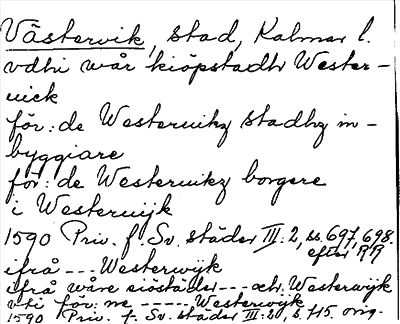 Västervik, stad, Kalmar l.
vdhi wår kiöpstadh Wester-
uick
för: de Westeruikz stadhz in-
byggiare
för: de Westeruikz borgere
i Westeruijk
1590 Priv. f. Sv. städer III:2, ss. 697, 698.
efter RR
ifrå --- Westerwijk
ifrå wåre siöstäder --- och Westerwijk
vti för: ne ----- Westerwijk
1590 Priv. f. Sv. städer III:2, s. 715. orig.